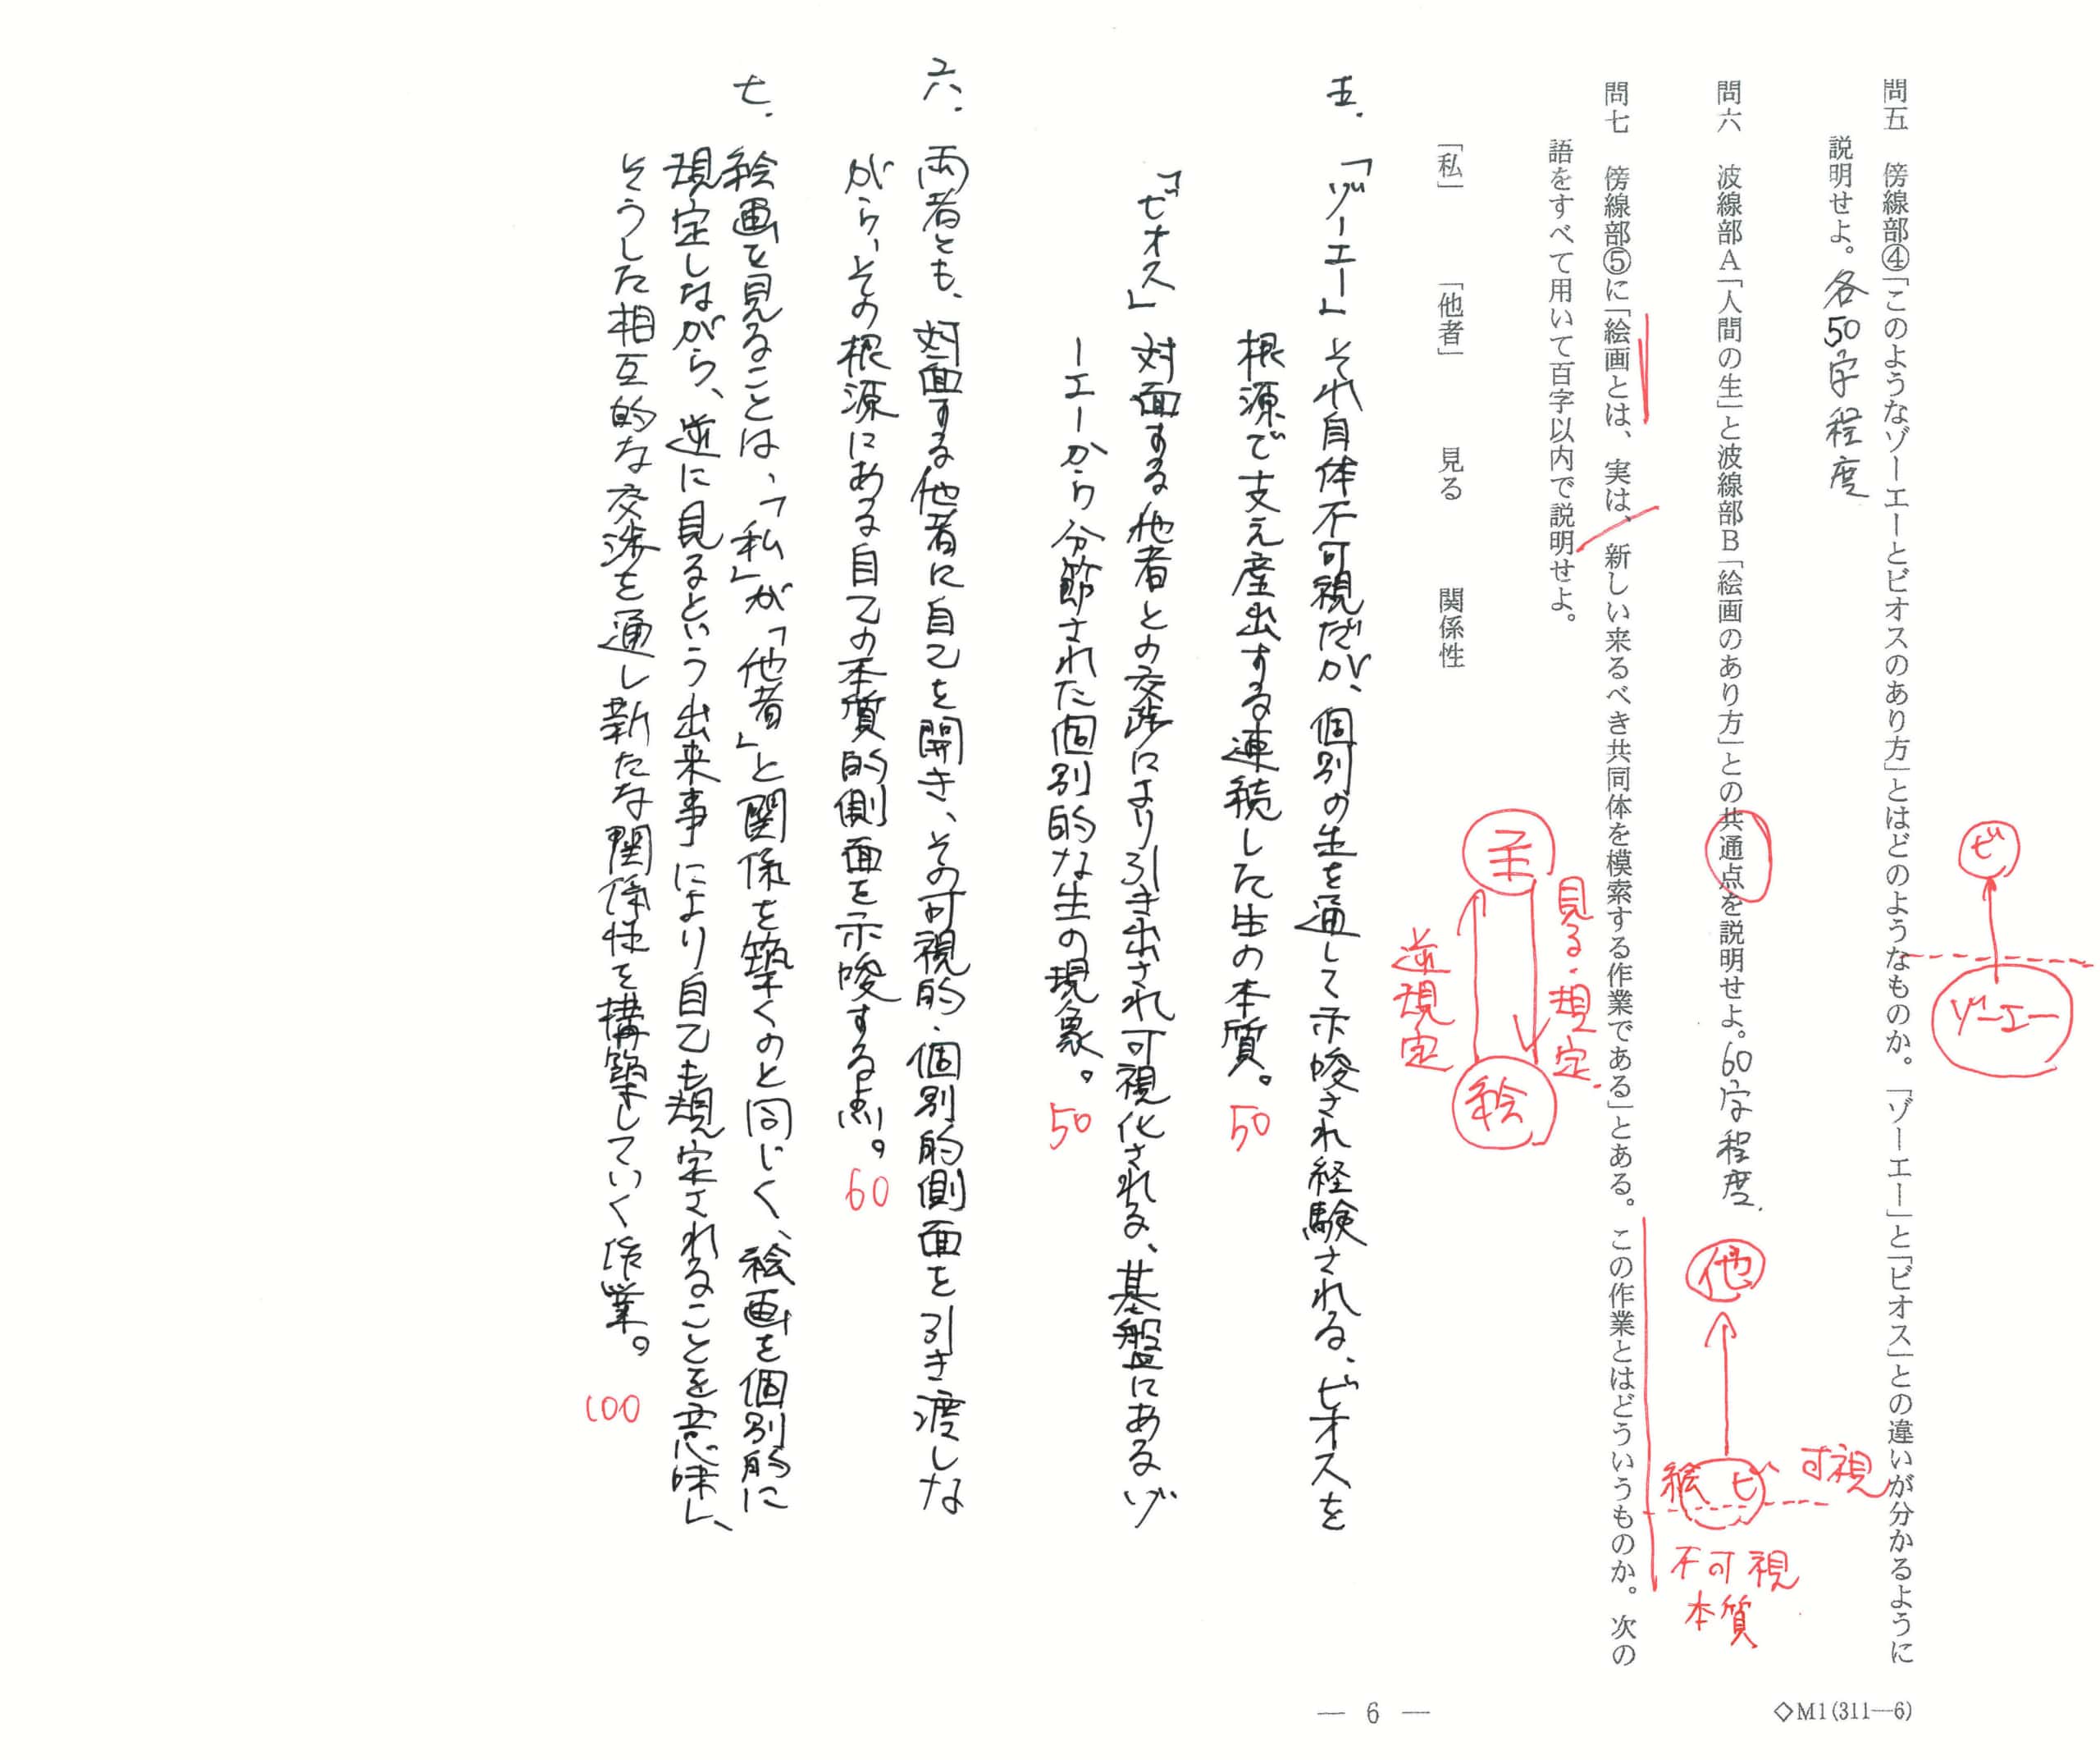 問五　傍線部④「このようなゾーエーとビオスのあり方」とはどのようなものか。「ゾーエー」と「ビオス」との違いが分かるように
説明せよ。各50字程度
問六　波線部A「人間の生」と波線部B「絵画のあり方」との共通点を説明せよ。60字程度.
問七　傍線部⑤に「絵画とは、実は、新しい来るべき共同体を模索する作業である」とある。この作業とはどういうものか。次の
語をすべて用いて百字以内で説明せよ。
「私」　「他者」　見る　関係性
ビ
ゾーエー
他
絵 ビ
可視
不可視
本質
見る・規定.
逆規定
絵
五.「ゾーエー」それ自体不可視だが、個別の生を通して示唆され経験される、ビオスを
根源で支え産出する連続した生の本質。50
「ビオス」対面する他者との交渉により引き出され可視化される、基盤にあるゾ
ーエーから分節された個別的な生の現象。50
六.両者とも、対面する他者に自己を開き、その可視的・個別的側面を引き渡しな
がら、その根源にある自己の本質的側面を示唆する点。60
七.絵画を見ることは、「私」が「他者」と関係を築くのと同じく、絵画を個別的に
規定しながら、逆に見るという出来事により自己も規定されることを意味し、
そうした相互的な交渉を通し新たな関係性を構築していく作業。100
— 6 —
◇M1(311—6)